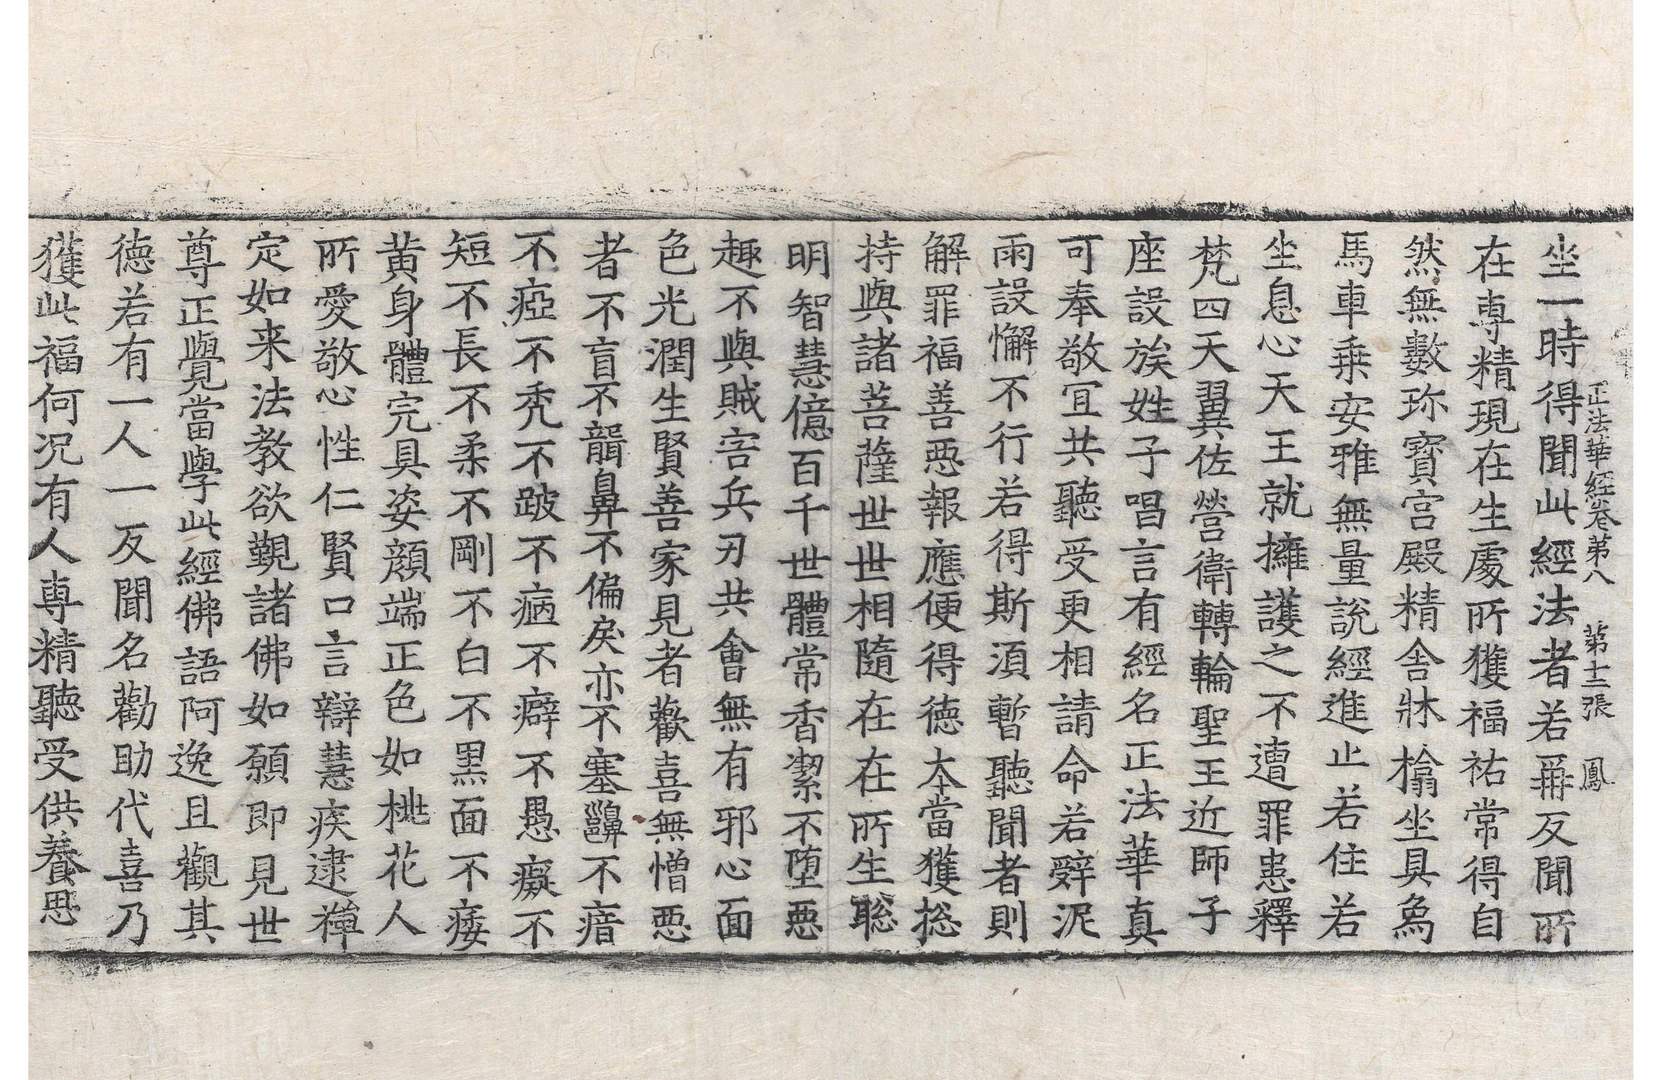 坐一時得聞此經法者若再反聞所
正法華經卷第八 第十二張 鳳
在專精現在生處所獲福祐常得自
然無數珎寶宫殿精舍牀榻坐具象
馬車乗安雅無量說經進止若住若
坐息心天王就擁護之不遭罪恚釋
梵四天翼佐營衛轉輪聖王近師子
座設族姓子唱言有經名正法華真
可奉敬冝共聽受更相請命若辤泥
雨設懈不行若得斯湏暫聽聞者則
解罪福善惡報應便得德本當獲捴
持與諸菩薩世世相隨在在所生聡
明智慧億百千世體常香潔不堕惡
趣不與賊害兵刃共會無有邪心面
色光潤生賢善家見者歡喜無憎惡
者不盲不聾鼻不偏戾亦不塞齆不瘖
不瘂不秃不跛不痐不癖不愚癡不
短不長不柔不剛不白不黒面不痿
黄身體完具姿顔端正色如桃花人
所愛敬心性仁賢口言辯慧疾逮禪
定如来法教欲覲諸佛如願即見世
尊正覺當學此經佛語阿逸且觀其
德若有一人一反聞名勸助代喜乃
獲此福何况有人專精聽受供養思